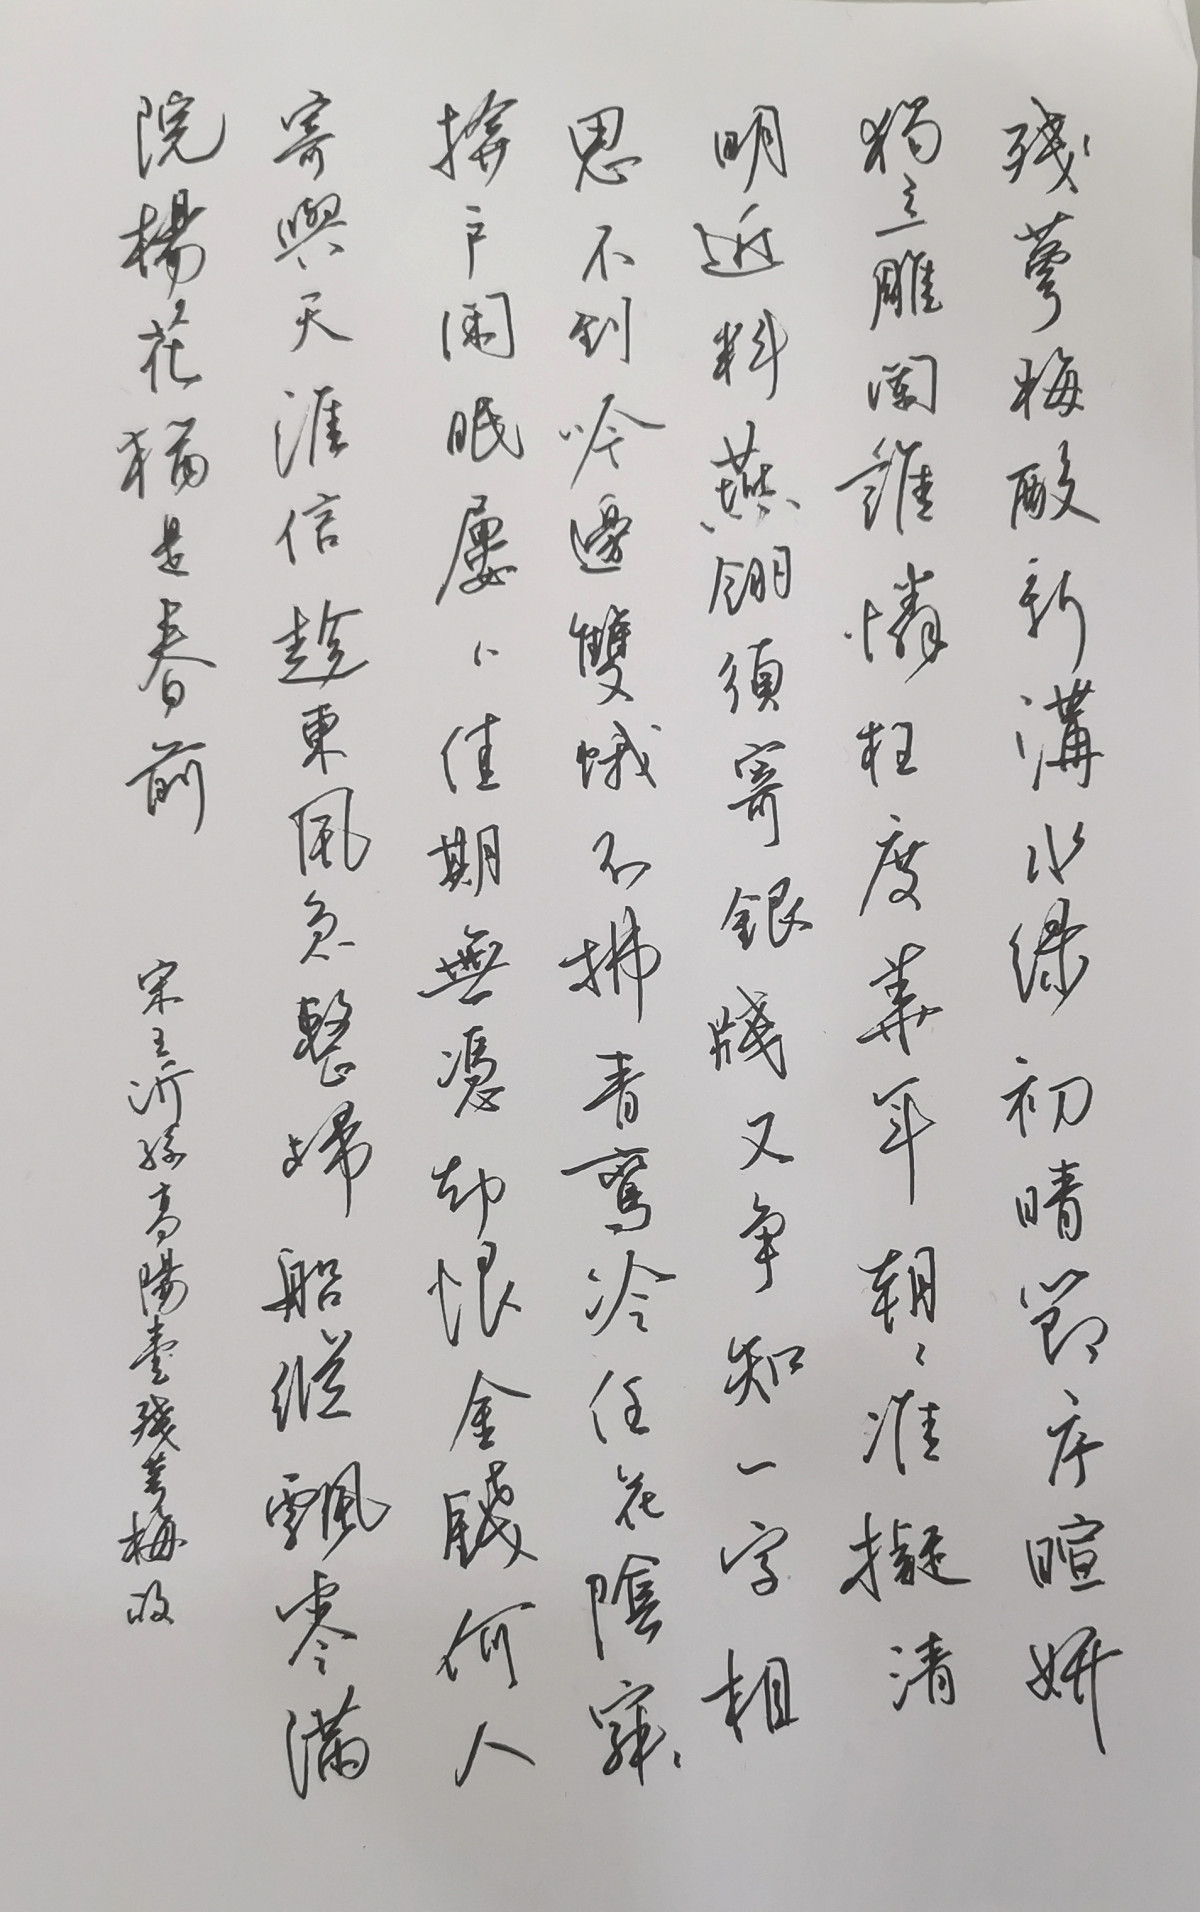 殘萼梅酸新溝水綠初晴節序暄妍
獨立雕闌誰憐枉度華年朝〻准擬清
明近料燕翎須寄銀牋又争知一字相
思不到吟邊雙蛾不拂青鸞冷任花陰寂〻
掩户閑眠屢卜佳期無憑却恨金錢何人
寄與天涯信趁東風急整歸船縱飄零滿
院楊花猶是春前
宋王沂孫高陽臺殘萼梅酸